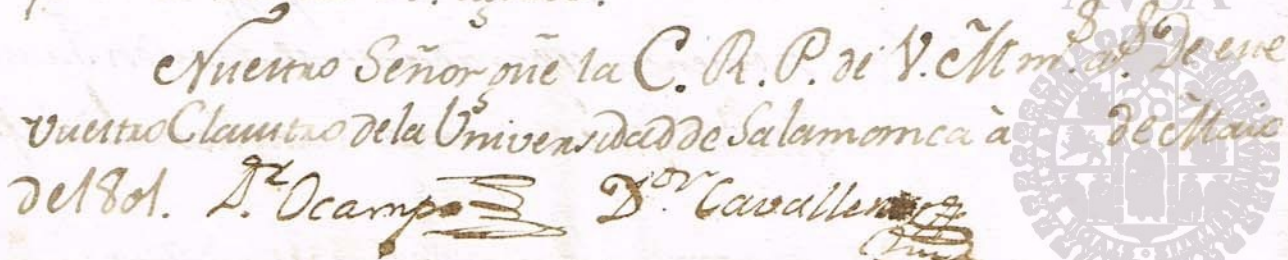 AVSA
Nuestro Señor gũe la C. R. P. de V. M m.s a.s De este
vuestro Claustro dela Universidad de Salamanca à de Maio
de 1801. D.r Ocampo D.or Cavallero